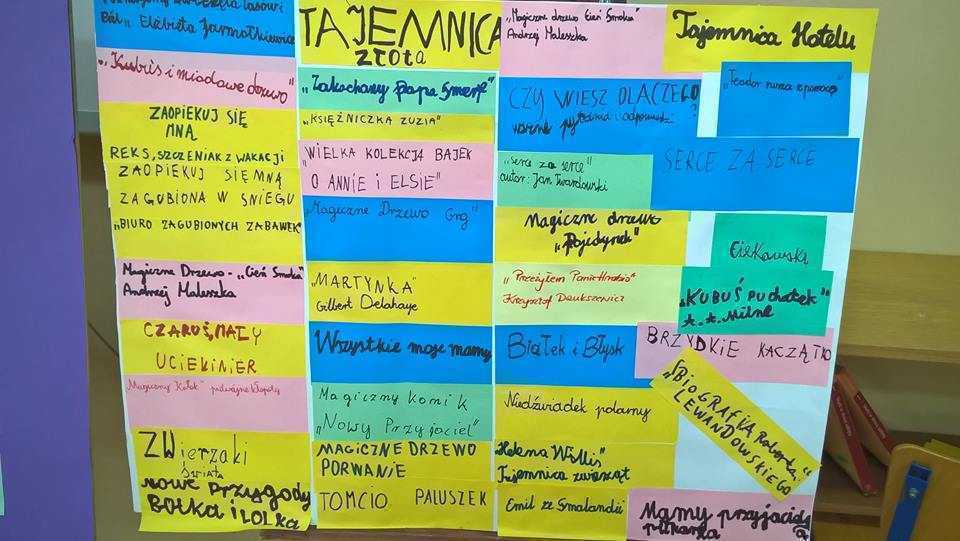 Bał" Elżbieta Jarmołkiewicz
"Kubuś i miodowe drzewo"
ZAOPIEKUJ SIĘ
MNĄ
REKS, SZCZENIAK Z WAKACJI
ZAOPIEKUJ SIĘ MNĄ
ZAGUBIONA W ŚNIEGU
"BIURO ZAGUBIONYCH ZABAWEK"
Magiczne Drzewo - "Cień Smoka"
Andrzej Maleszka
CZARUŚ, MAŁY
UCIEKINIER
"Magiczny Kotek" podwójne kłopoty
ZWierzaki
Świata
NOWE PRZYGODY
BOLKA i LOLKa
TAJEMNICA
złota
"Zakochany Papa Smerf"
"KSIĘŻNICZKA ZUZIA"
"WIELKA KOLEKCJA BAJEK
O ANNIE I ELSIE"
"Magiczne Drzewo Gra"
"MARTYNKA"
Gilbert Delahaye
Wszystkie moje mamy
Magiczny komik
"Nowy Przyjaciel"
MAGICZNE DRZEWO
PORWANIE
TOMCIO PALUSZEK
"Magiczne drzewo Cień Smoka"
Andrzej Maleszka
CZY WIESZ DLACZEGO
ważne pytania i odpowiedzi ?
"serce za serce"
autor: Jan Twardowski
Magiczne drzewo
"Pojedynek"
"Przeżyłem Panie Hrabio"
Krzysztof Daukszewicz
Białek i Błysk
Niedźwiadek polarny
Helena Willis
Tajemnica zwierząt
Emil ze Smalandii
Tajemnica Hotelu
"Teodor rusza z pomocą"
SERCE ZA SERCE
Ciekawski
"KUBUŚ PUchatek"
A. A. Milne
BRZYDKIE KACZĄTKO
"BIOGRAFKA Roberta
LEWANDOWSKIEGO"
Mamy przyjaciela
piłkarza